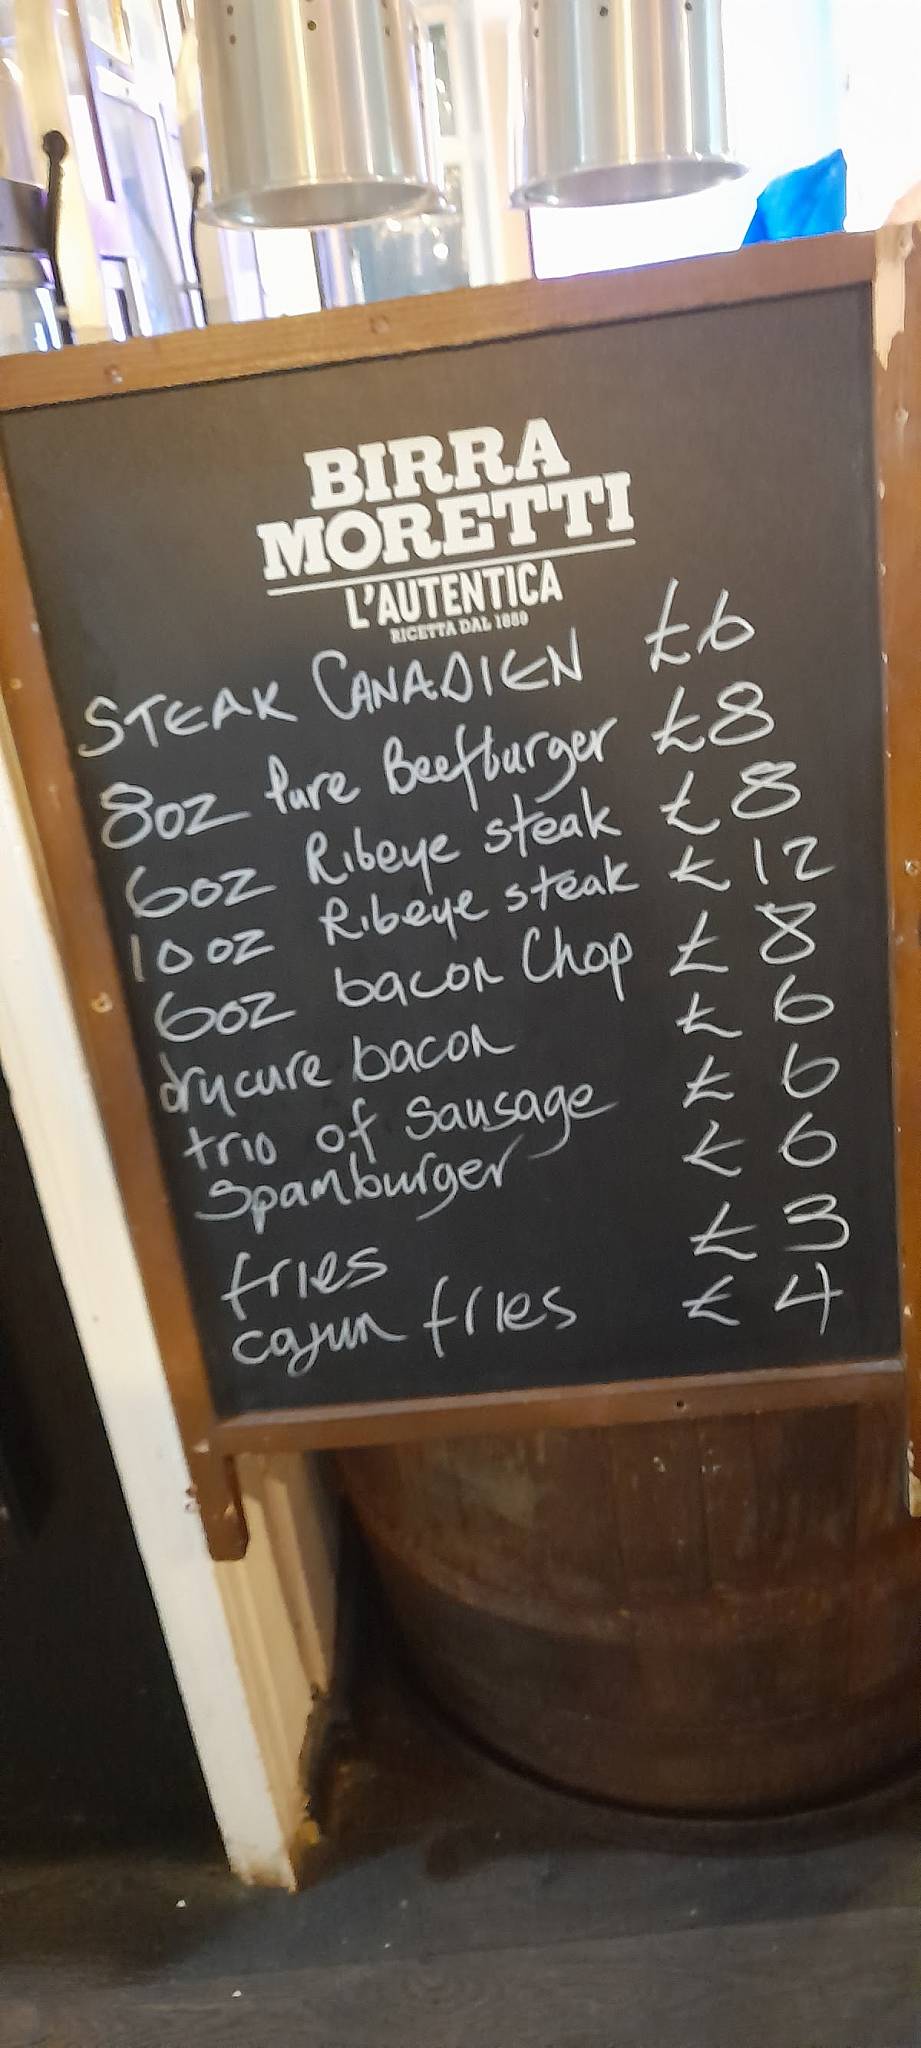 BIRRA
MORETTI
L'AUTENTICA
RICETTA DAL 1859
STEAK CANADIEN £6
8oz Pure Beefburger £8
6oz Ribeye steak £8
10oz Ribeye steak £12
6oz bacon Chop £8
drycure bacon £6
trio of Sausage £6
Spamburger £6
fries £3
cajun fries £4